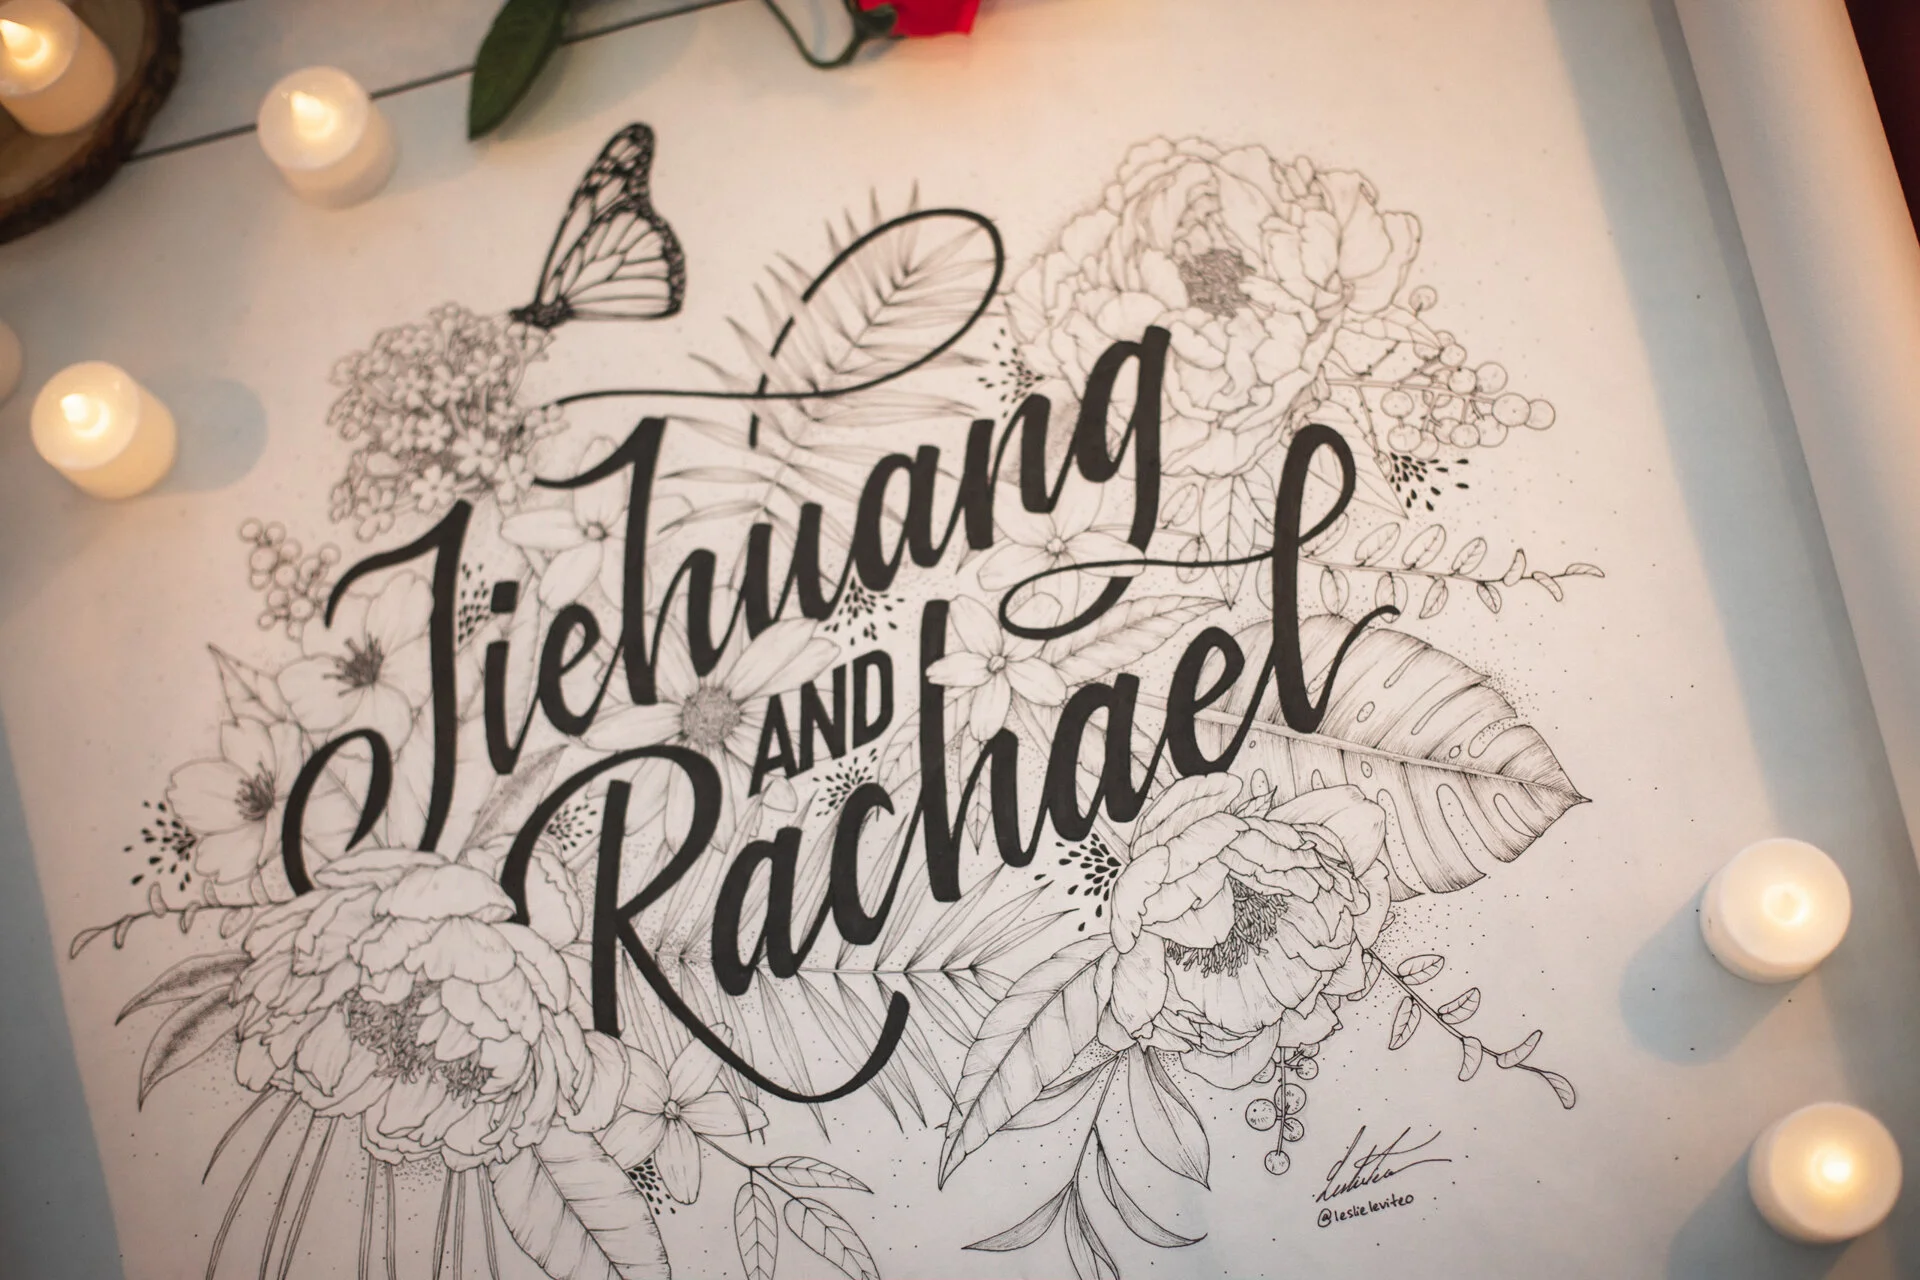 Jiehuang
AND
Rachael
@leslieleviteo